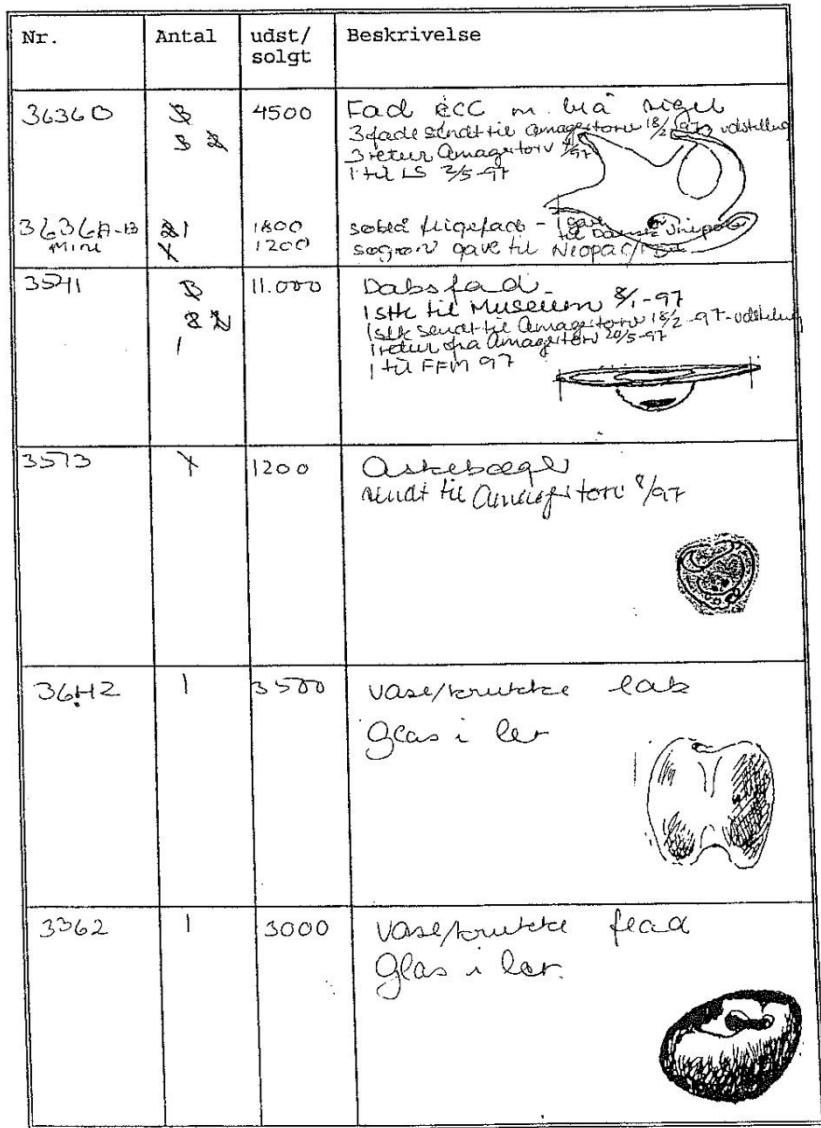 Nr. Antal udst/ Beskrivelse
solgt
3636D 3 4500 Fad ECC m. blå rigel
3 2 3 fade sendt til Amagertorv 18/2 97 udstilling
3 retur Amagertorv /97
1 til LS 2/5-97
3636A-B 2 1 1800 søblå fligefad - 1 gave til Dansk Unipa
Mini 1 1200 søgrøn gave til Neopac
3541 3 11.000 Dabsfad
1 stk til Museum 8/1-97
2 1 stk sendt til Amagertorv 18/2-97-udstilling
1 1 retur fra Amagertorv 20/5-97
1 til FFM 97
3573 1 1200 Askebæger
sendt til Amagertorv 8/97
3642 1 3500 vase/krukke
glas i ler
3362 1 3000 vase/krukke flad
Glas i ler.